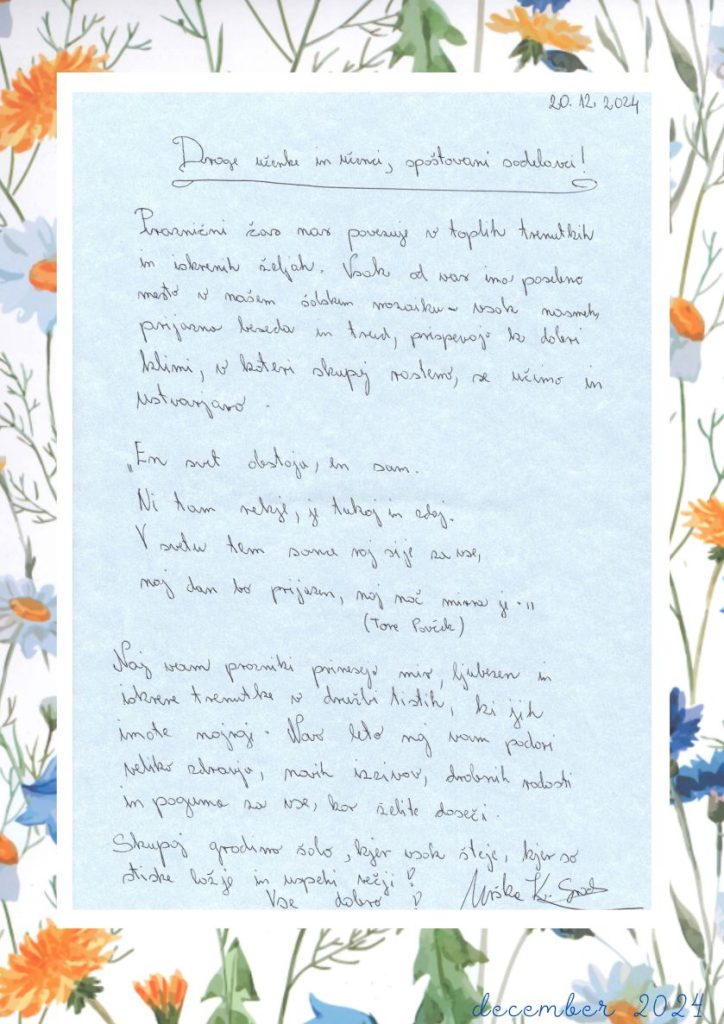 20.12.2024
Drage učenke in učenci, spoštovani sodelavci!
Praznični čas nas povezuje v toplih trenutkih
in iskrenih željah. Vsak od vas ima posebno
mesto v našem šolskem mozaiku – vsak nasmeh,
prijazna beseda in trud, prispevajo k dobri
klimi, v kateri skupaj rastemo, se učimo in
ustvarjamo.
„En svet obstaja, en sam.
Ni tam nekje, je tukaj in zdaj.
V svetu tem sonce naj sije za vse,
naj dan bo prijazen, naj noč mirna je."
(Tone Pavček)
Naj vam prazniki prinesejo mir, ljubezen in
iskrene trenutke v družbi tistih, ki jih
imate najraje. Novo leto naj vam podari
veliko zdravja, novih izzivov, drobnih radosti
in poguma za vse, kar želite doseči.
Skupaj gradimo šolo, kjer vsak šteje, kjer so
stiske lažje in uspehi večji!
Vse dobro! Urška K.
december 2024